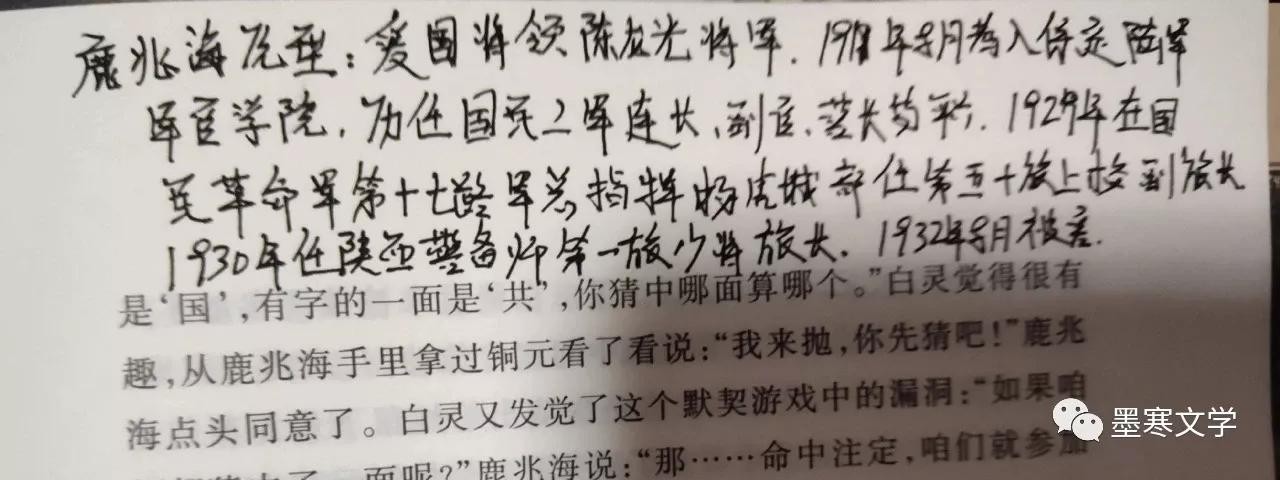 鹿兆海原型：爱国将领陈友光将军.19年月考入保定陆军
军官学院，历任国民二军连长、副官、营长等.1929年在国
民革命军第十七路军总指挥杨虎城部任第五十旅上校副旅长
1930年任陕西警备师第一旅少将旅长.1932年月被害.
是‘国’,有字的一面是‘共’,你猜中哪面算哪个。”白灵觉得很有
趣,从鹿兆海手里拿过铜元看了看说:“我来抛,你先猜吧！”鹿兆
海点头同意了。白灵又发觉了这个默契游戏中的漏洞:“如果咱
一面呢?”鹿兆海说:“那……命中注定,咱们就参加
墨寒文学